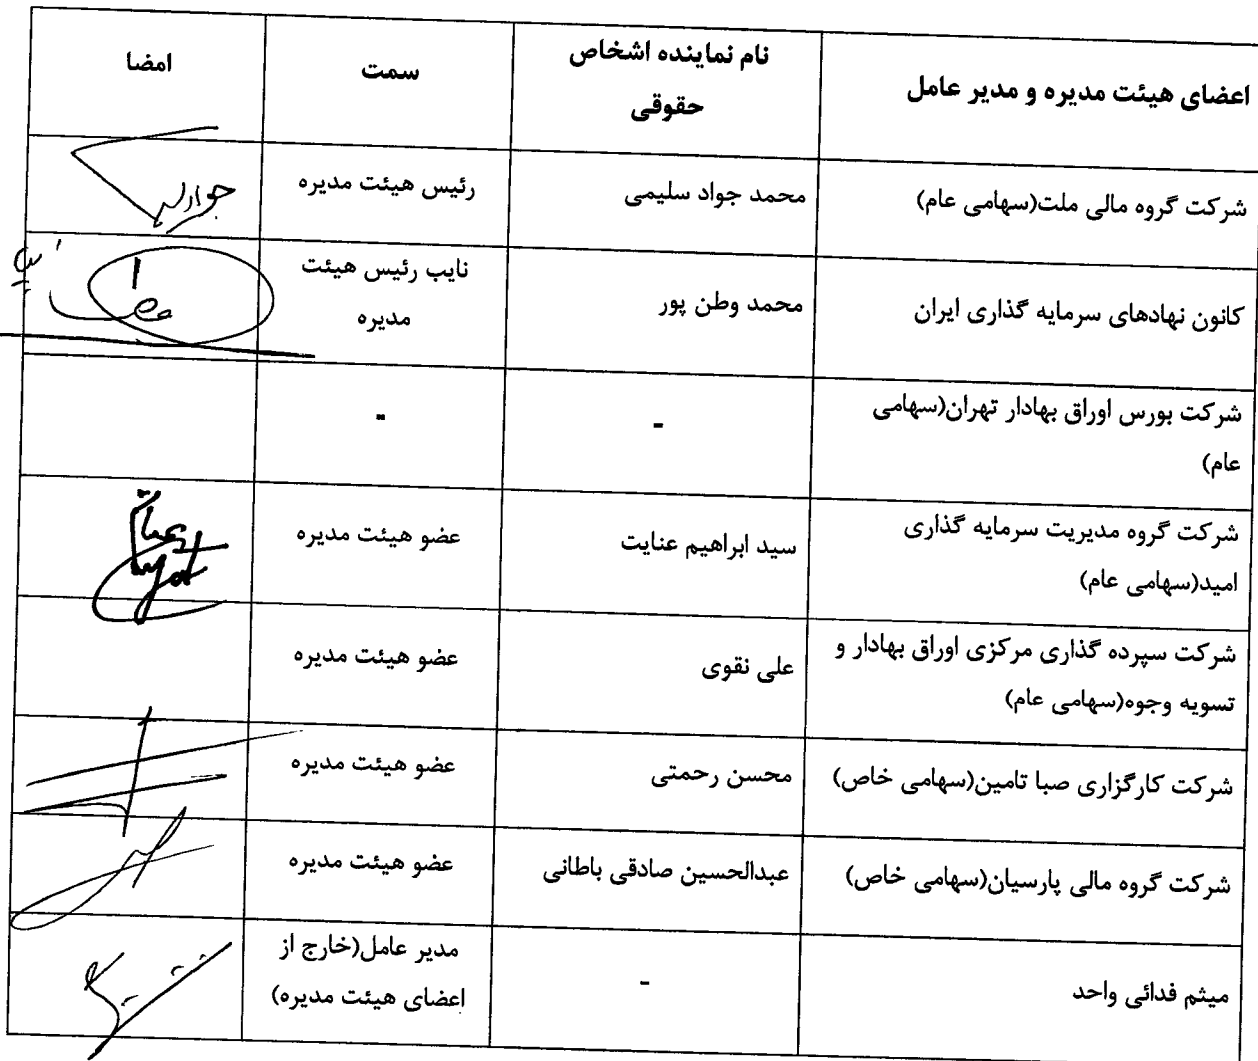 اعضای هیئت مدیره و مدیر عامل
نام نماینده اشخاص
حقوقی
سمت
امضا
شرکت گروه مالی ملت(سهامی عام)
محمد جواد سلیمی
رئیس هیئت مدیره
کانون نهادهای سرمایه گذاری ایران
محمد وطن پور
نایب رئیس هیئت
مدیره
شرکت بورس اوراق بهادار تهران(سهامی
عام)
-
-
شرکت گروه مدیریت سرمایه گذاری
امید(سهامی عام)
سید ابراهیم عنایت
عضو هیئت مدیره
شرکت سپرده گذاری مرکزی اوراق بهادار و
تسویه وجوه(سهامی عام)
علی نقوی
عضو هیئت مدیره
شرکت کارگزاری صبا تامین(سهامی خاص)
محسن رحمتی
عضو هیئت مدیره
شرکت گروه مالی پارسیان(سهامی خاص)
عبدالحسین صادقی باطانی
عضو هیئت مدیره
میثم فدائی واحد
-
مدیر عامل(خارج از
اعضای هیئت مدیره)